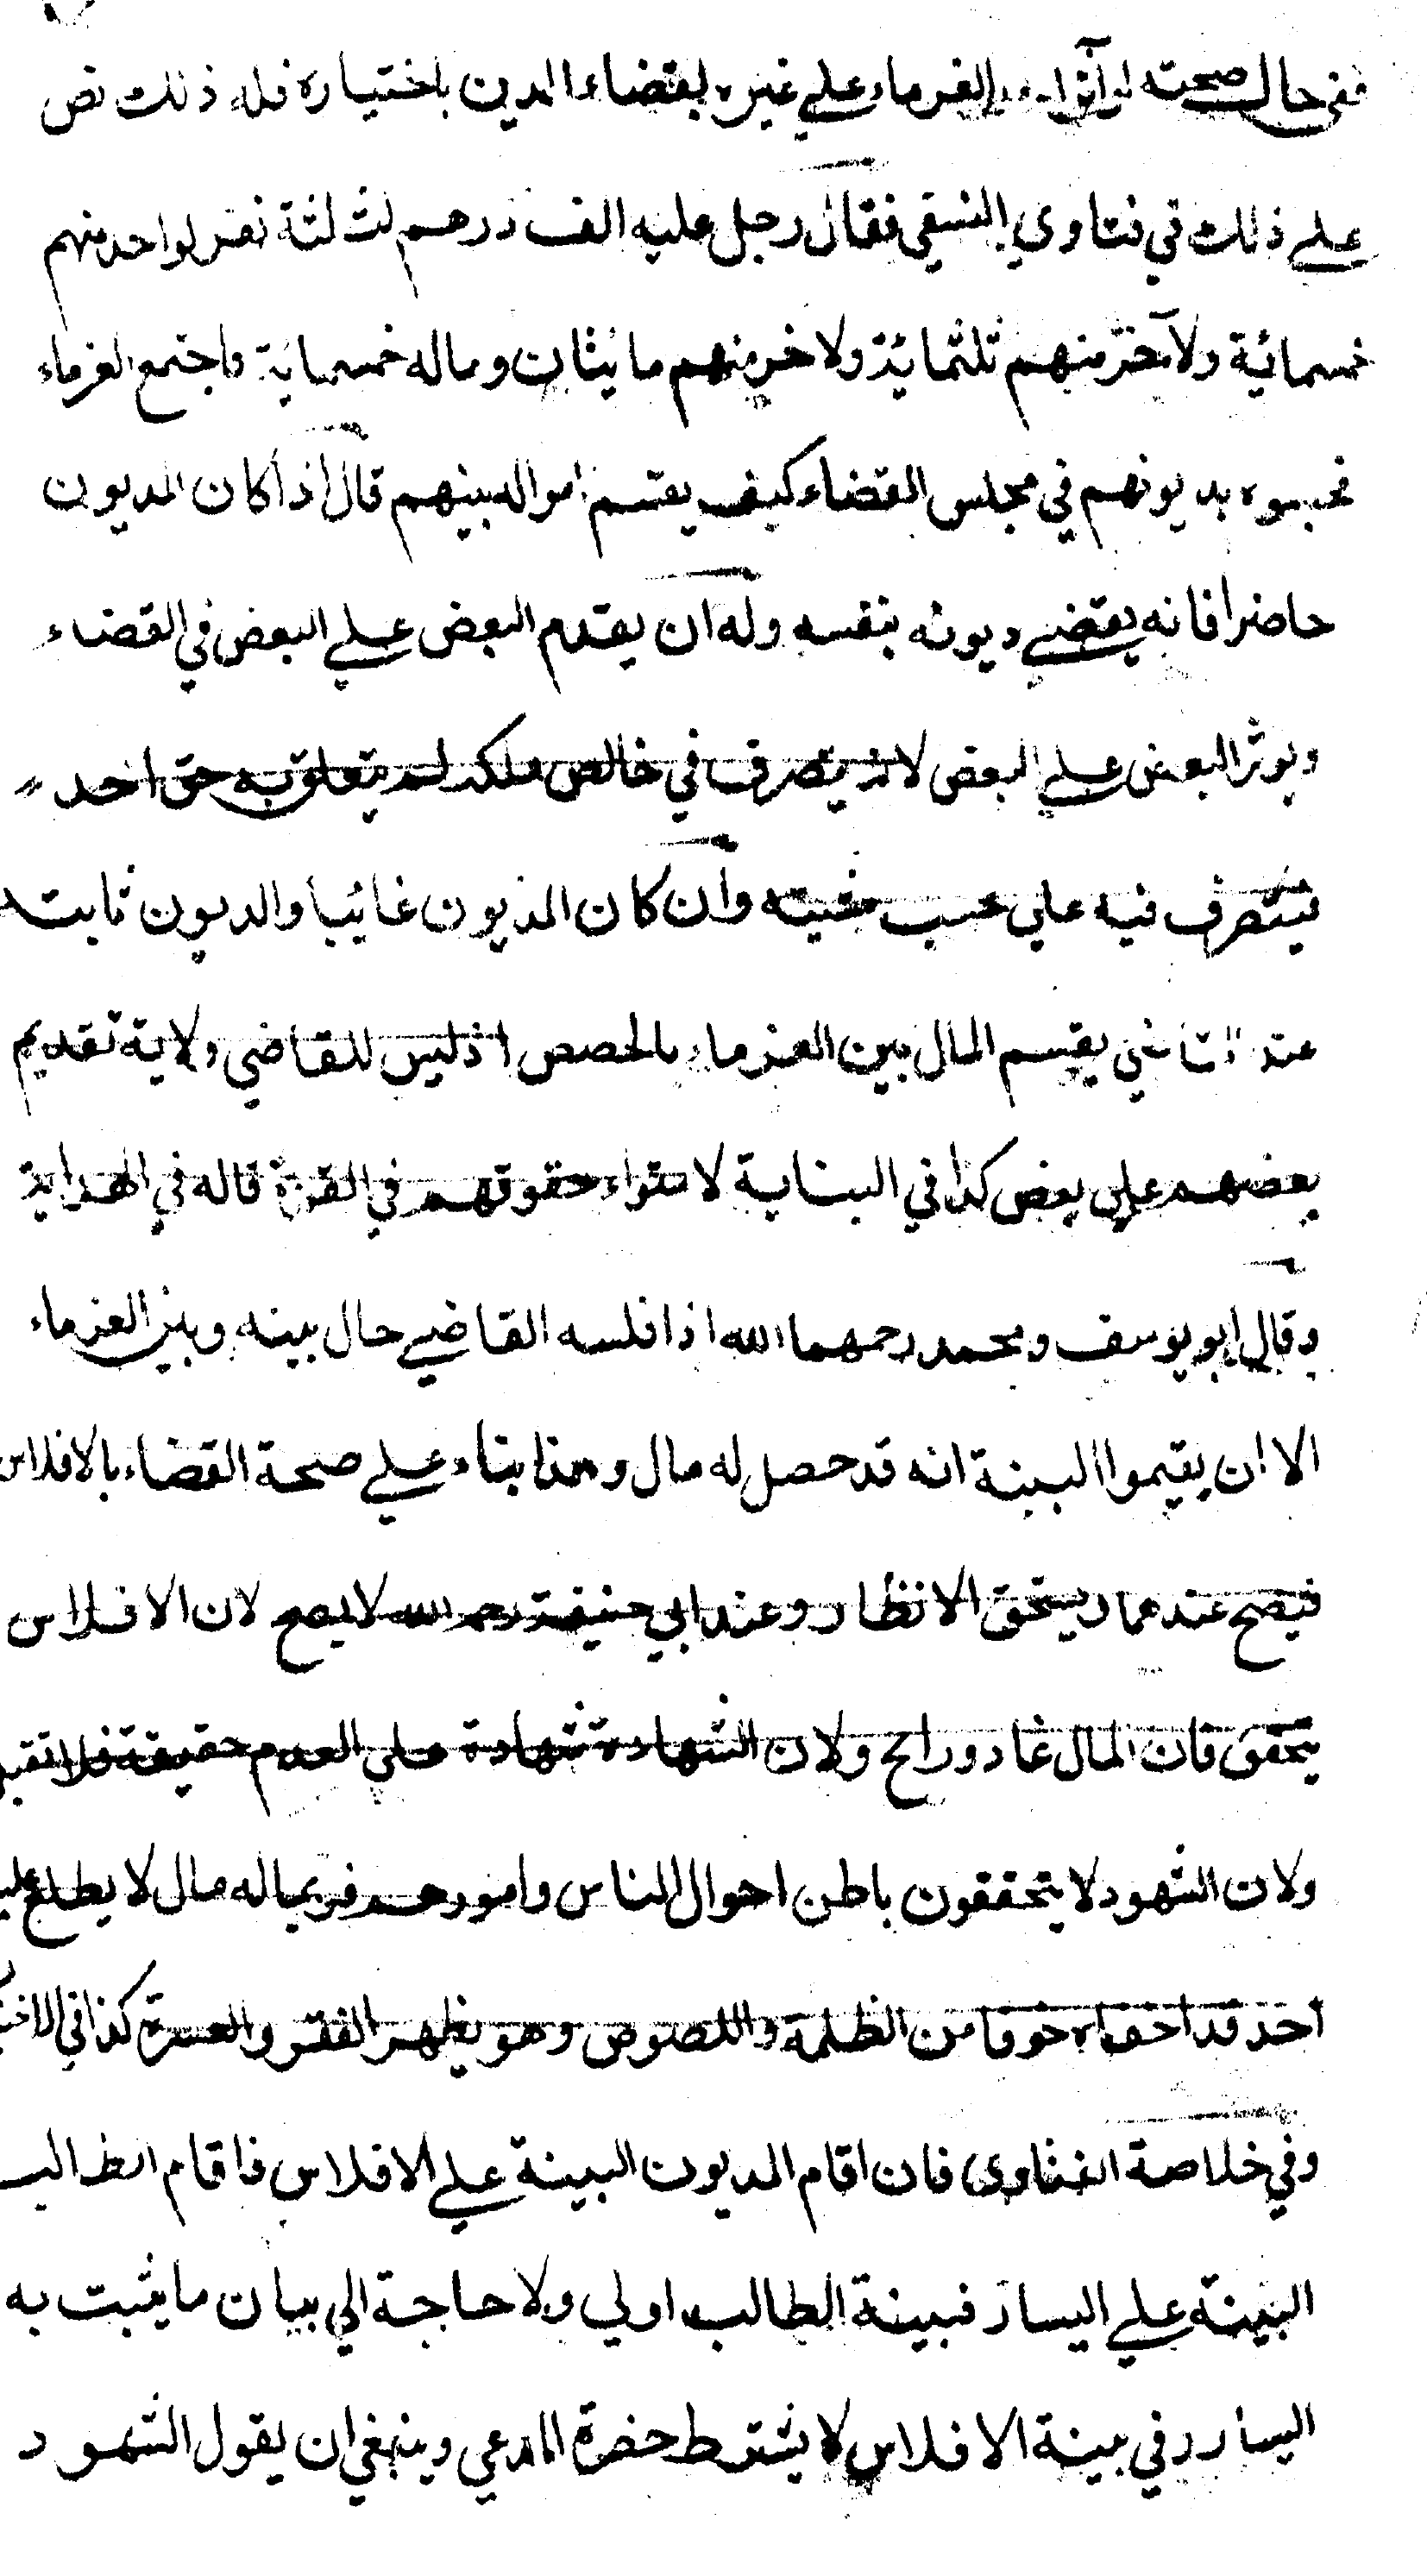 ففى حال صحته لو آثر احد الغرماء علي غيره بقضاء الدين باختياره فله ذلك نص
علي ذلك في فتاوي النسفي فقال رجل عليه الف درهم لثلثة نفر لواحد منهم
خمسمائية ولآخر منهم ثلثمائة ولاخر منهم مايئتان وماله خمسمائة واجتمع الغرماء
فحبسوه بديونهم في مجلس القضاء كيف يقسم امواله بينهم قال اذا كان المديون
حاضرا فانه يقضي ديونه بنفسه وله ان يقدم البعض علي البعض في القضاء
ويوثر البعض علي البعض لانه يتصرف في خالص ملكه لم يتعلق به حق احد
فيتصرف فيه علي حسب مشيته وان كان المديون غائبا والديون ثابتة
عند القاضي يقسم المال بين الغرماء بالحصص اذ ليس للقاضي ولاية تقديم
بعضهم علي بعض كذا في البناية لاستواء حقوقهم في القوة قاله في الهداية
وقال ابو يوسف ومحمد رحمهما الله اذا فلسه القاضي حال بينه وبين الغرماء
الا ان يقيموا البينة انه قد حصل له مال وهذا بناء علي صحة القضاء بالافلاس
فيصح عندهما ويستحق الانظار وعند ابي حنيفة رحمه الله لا يصح لان الافلاس
يتحقق فان المال غاد ورايح ولان الشهادة شهادة علي العدم حقيقة فلا تقبل
ولان الشهود لا يتحققون باطن احوال الناس وامورهم فربما له مال لا يطلع عليه
احد قد اخفاه خوفا من الظلمة واللصوص وهو يظهر الفقر والعسرة كذا في
وفي خلاصة الفتاوى فان اقام المديون البينة علي الافلاس فاقام الطالب
البينة علي اليسار فبينة الطالب اولي ولا حاجة الي بيان ما يثبت به
اليسار وفي بينة الافلاس لا يشترط حضرة المدعي وينبغي ان يقول الشهود